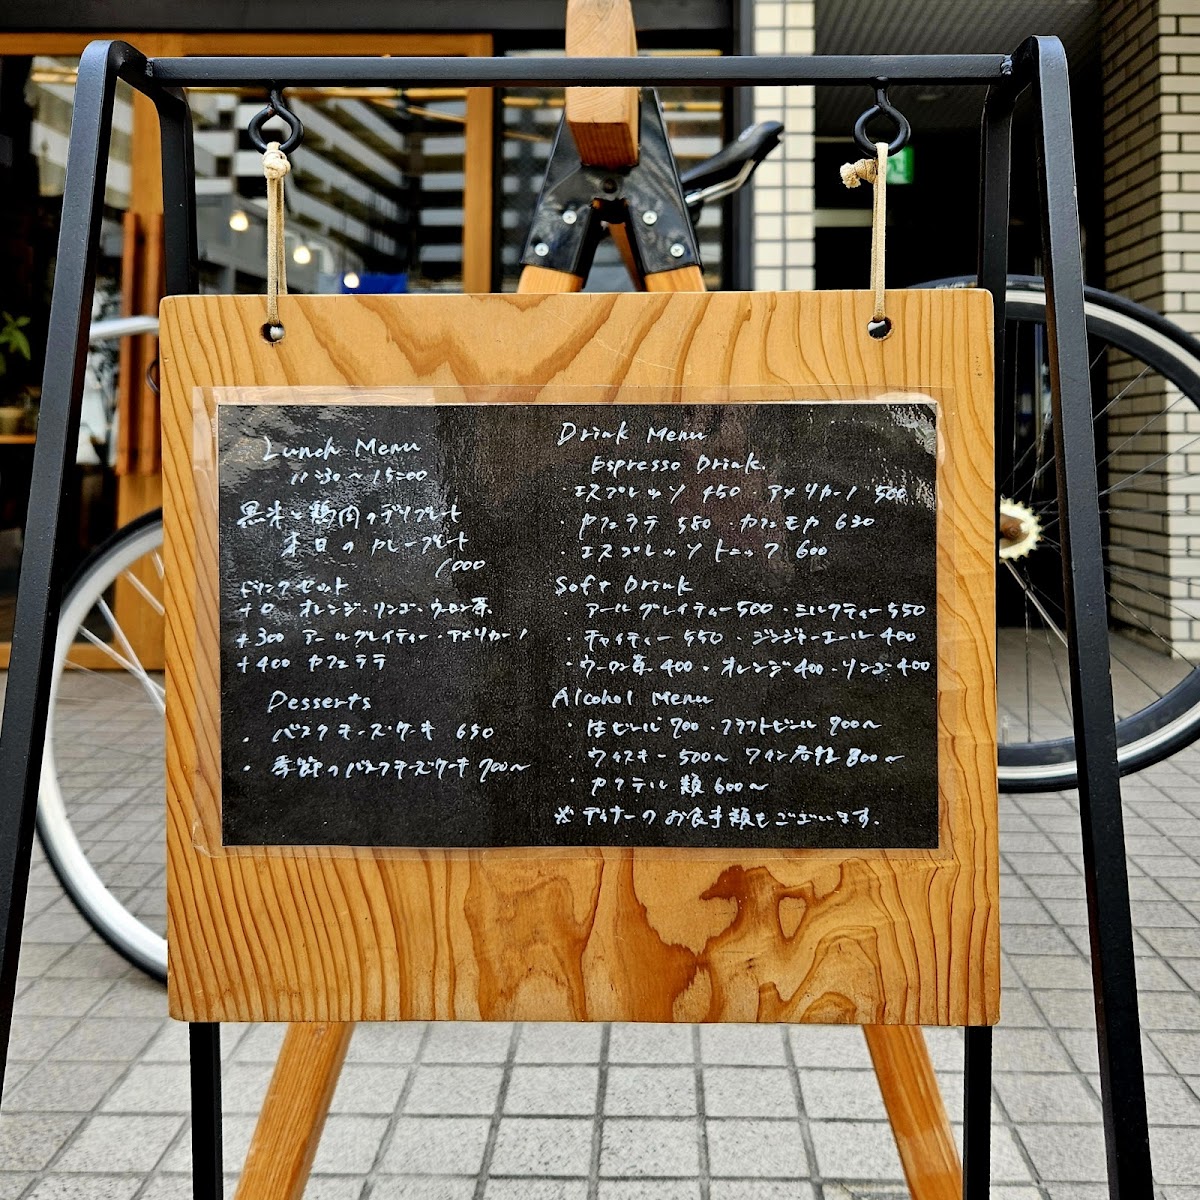 Lunch Menu
11:30〜15:00
黒米と鶏肉のデリプレート
本日のカレープレート
1000
ドリンクセット
+0 オレンジ・リンゴ・ウーロン茶
+300 アールグレイティー・アメリカーノ
+400 カフェラテ
Desserts
・バスクチーズケーキ 650
・季節のバスクチーズケーキ 700〜
Drink Menu
Espresso Drink.
・エスプレッソ 450 ・アメリカーノ 500
・カフェラテ 580 ・カフェモカ 630
・エスプレッソトニック 600
Soft Drink
・アールグレイティー 500 ・ミルクティー 550
・チャイティー 550 ・ジンジャーエール 400
・ウーロン茶 400 ・オレンジ 400 ・リンゴ 400
Alcohol Menu
・生ビール 700 ・クラフトビール 900〜
・ウィスキー 500〜 ワイン各種 800〜
・カクテル類 600〜
※ディナーのお食事類もございます。